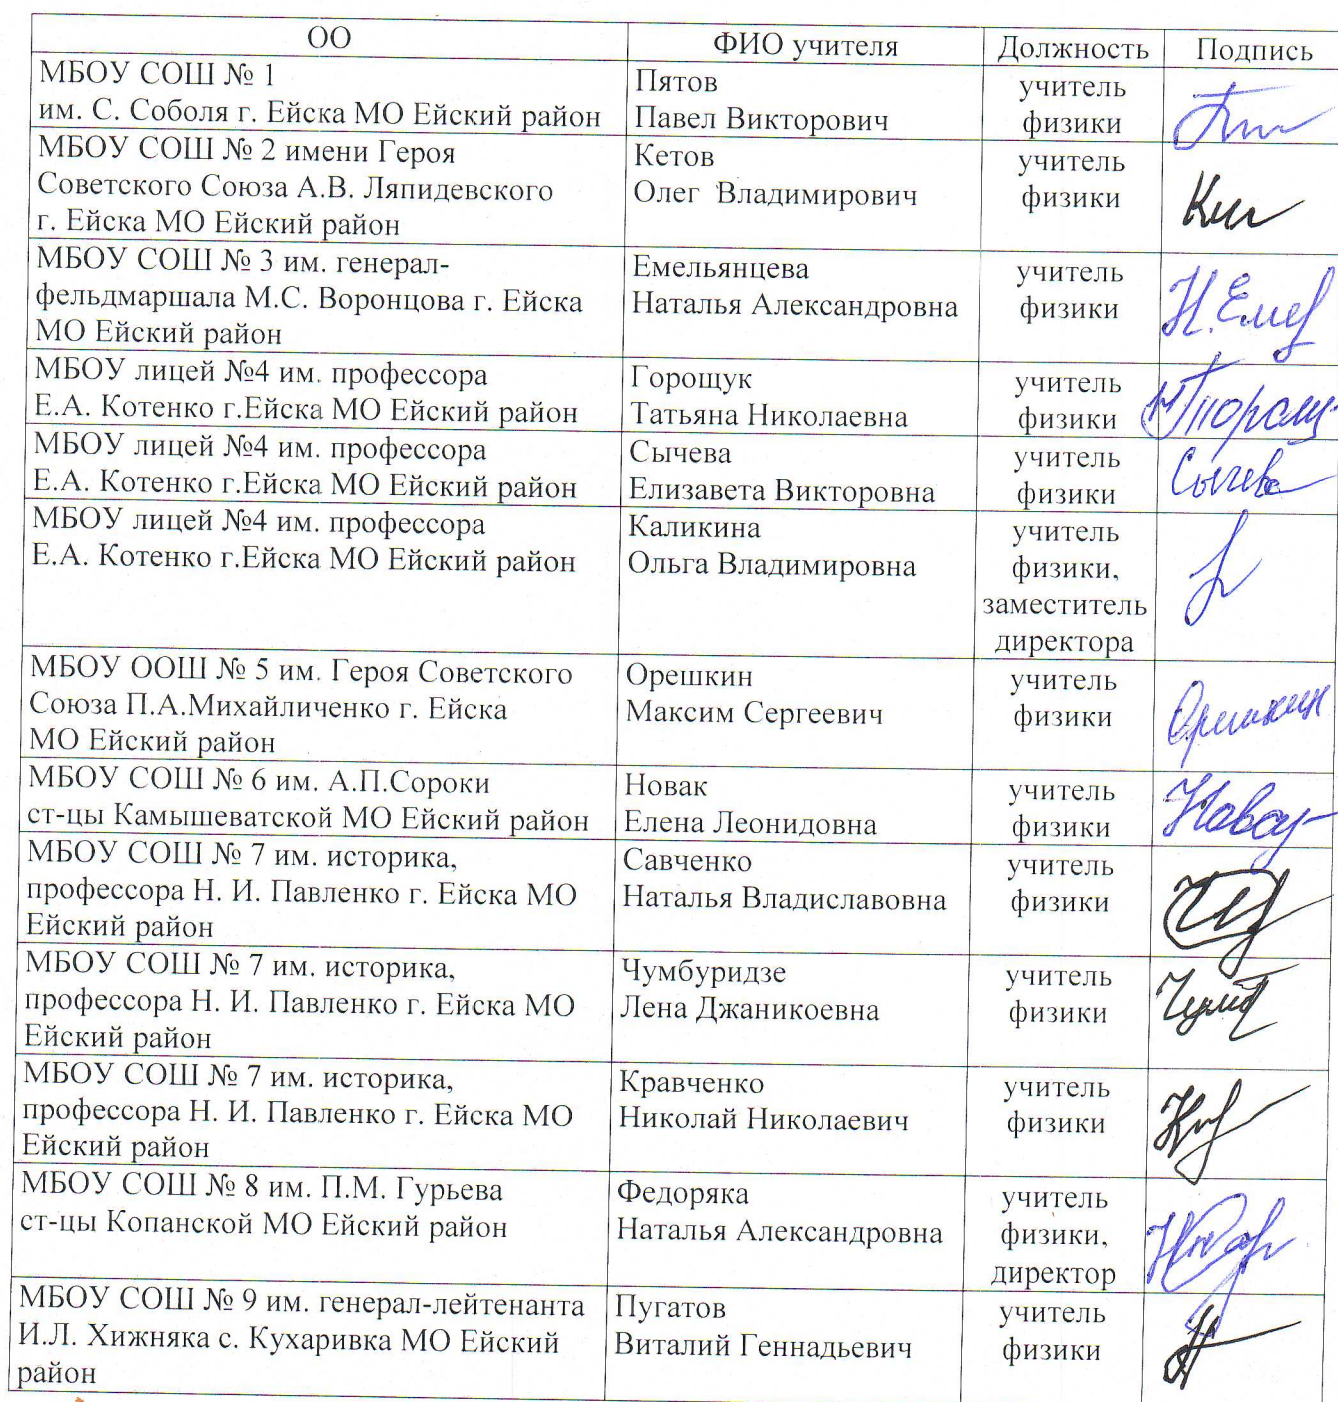 ОО ФИО учителя Должность Подпись
МБОУ СОШ № 1
им. С. Соболя г. Ейска МО Ейский район
Пятов
Павел Викторович
учитель
физики
МБОУ СОШ № 2 имени Героя
Советского Союза А.В. Ляпидевского
г. Ейска МО Ейский район
Кетов
Олег Владимирович
учитель
физики
МБОУ СОШ № 3 им. генерал-
фельдмаршала М.С. Воронцова г. Ейска
МО Ейский район
Емельянцева
Наталья Александровна
учитель
физики
МБОУ лицей №4 им. профессора
Е.А. Котенко г.Ейска МО Ейский район
Горощук
Татьяна Николаевна
учитель
физики
МБОУ лицей №4 им. профессора
Е.А. Котенко г.Ейска МО Ейский район
Сычева
Елизавета Викторовна
учитель
физики
Сычева
МБОУ лицей №4 им. профессора
Е.А. Котенко г.Ейска МО Ейский район
Каликина
Ольга Владимировна
учитель
физики,
заместитель
директора
МБОУ ООШ № 5 им. Героя Советского
Союза П.А.Михайличенко г. Ейска
МО Ейский район
Орешкин
Максим Сергеевич
учитель
физики
Орешкин
МБОУ СОШ № 6 им. А.П.Сороки
ст-цы Камышеватской МО Ейский район
Новак
Елена Леонидовна
учитель
физики
МБОУ СОШ № 7 им. историка,
профессора Н. И. Павленко г. Ейска МО
Ейский район
Савченко
Наталья Владиславовна
учитель
физики
МБОУ СОШ № 7 им. историка,
профессора Н. И. Павленко г. Ейска МО
Ейский район
Чумбуридзе
Лена Джаникоевна
учитель
физики
МБОУ СОШ № 7 им. историка,
профессора Н. И. Павленко г. Ейска МО
Ейский район
Кравченко
Николай Николаевич
учитель
физики
МБОУ СОШ № 8 им. П.М. Гурьева
ст-цы Копанской МО Ейский район
Федоряка
Наталья Александровна
учитель
физики,
директор
МБОУ СОШ № 9 им. генерал-лейтенанта
И.Л. Хижняка с. Кухаривка МО Ейский
район
Пугатов
Виталий Геннадьевич
учитель
физики